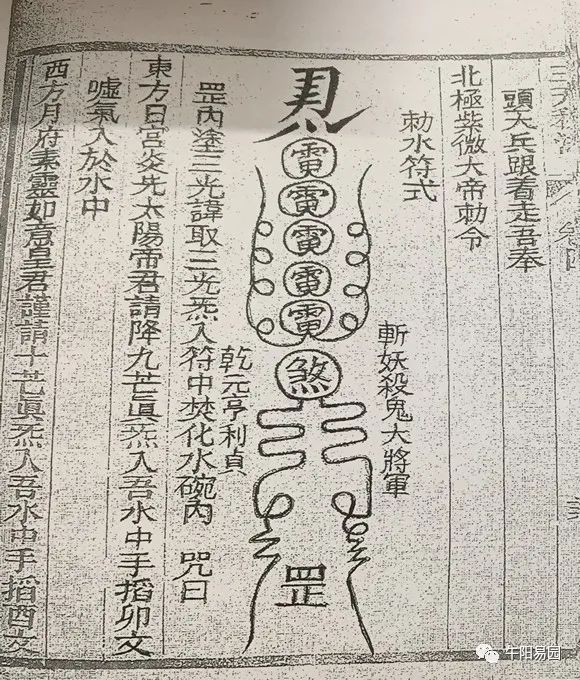 頭大兵跟着走吾奉
北極紫微大帝勅令
勅水符式
斬妖殺鬼大將軍
電
電
電
電
電
煞
罡
乾元亨利貞
罡內塗三光諱取三光炁入符中焚化水碗內 咒曰
東方日宮炎光太陽帝君請降九芒眞炁入吾水中手搯卯文
噓氣入於水中
西方月府素靈如意皇君謹請十芒眞炁入吾水中手搯酉文
牛阳易园